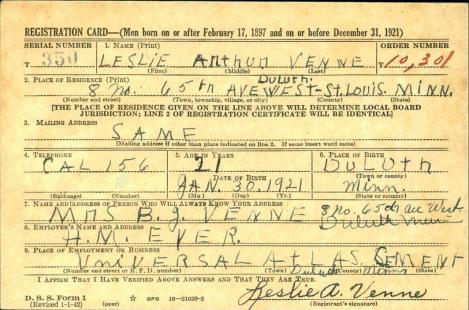 REGISTRATION CARD—(Men born on or after February 17, 1897 and on or before December 31, 1921)
SERIAL NUMBER 1. NAME (Print) ORDER NUMBER
T 350 LESLIE ArthUr VENNE 10,301
(First) (Middle) (Last)
2. PLACE OF RESIDENCE (Print) Duluth
8 No. 65th AVE WEST-St. LOUIS. MINN.
(Number and street) (Town, township, village, or city) (County) (State)
[THE PLACE OF RESIDENCE GIVEN ON THE LINE ABOVE WILL DETERMINE LOCAL BOARD
JURISDICTION; LINE 2 OF REGISTRATION CERTIFICATE WILL BE IDENTICAL]
3. MAILING ADDRESS
SAME
[Mailing address if other than place indicated on line 2. If same insert word same]
4. TELEPHONE 5. AGE IN YEARS 6. PLACE OF BIRTH
CAL 156 21 DULUth
DATE OF BIRTH (Town or county)
JAN. 30. 1921 Minn.
(Exchange) (Number) (Mo.) (Day) (Yr.) (State or country)
7. NAME AND ADDRESS OF PERSON WHO WILL ALWAYS KNOW YOUR ADDRESS
MRS B. J. VENNE 8 No. 65th Ave West.
8. EMPLOYER'S NAME AND ADDRESS Duluth Minn
H. M EYER.
9. PLACE OF EMPLOYMENT OR BUSINESS
UNIVERSAL AtLAS SEMENT
(Number and street or R. F. D. number) (Town) Duluth (County) Minn. (State)
I AFFIRM THAT I HAVE VERIFIED ABOVE ANSWERS AND THAT THEY ARE TRUE.
D. S. S. Form 1
(Revised 1-1-42) (over) ☆ GPO 16—21630-2 Leslie A. Venne
(Registrant's signature)